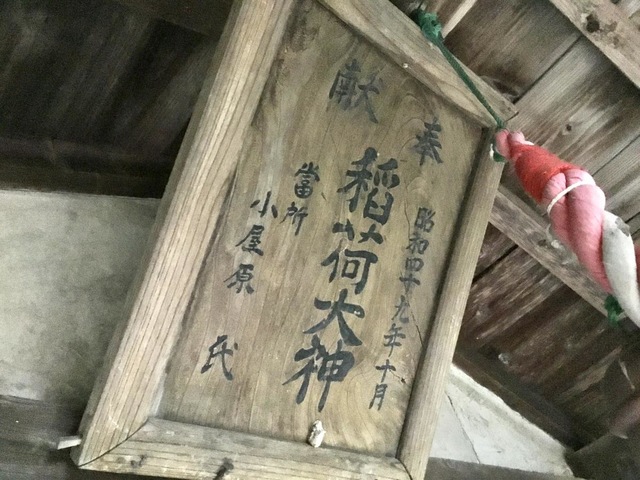 奉献
昭和四十九年十月
稲荷大神
當所
小屋原氏